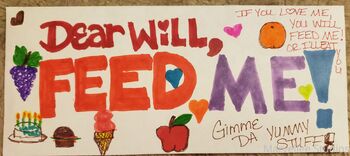 DEAR WILL,
FEED ME!
IF YOU LOVE ME,
YOU WILL
FEED ME!
OR I'LL EAT
YOU
GIMME
DA YUMMY
STUFF!